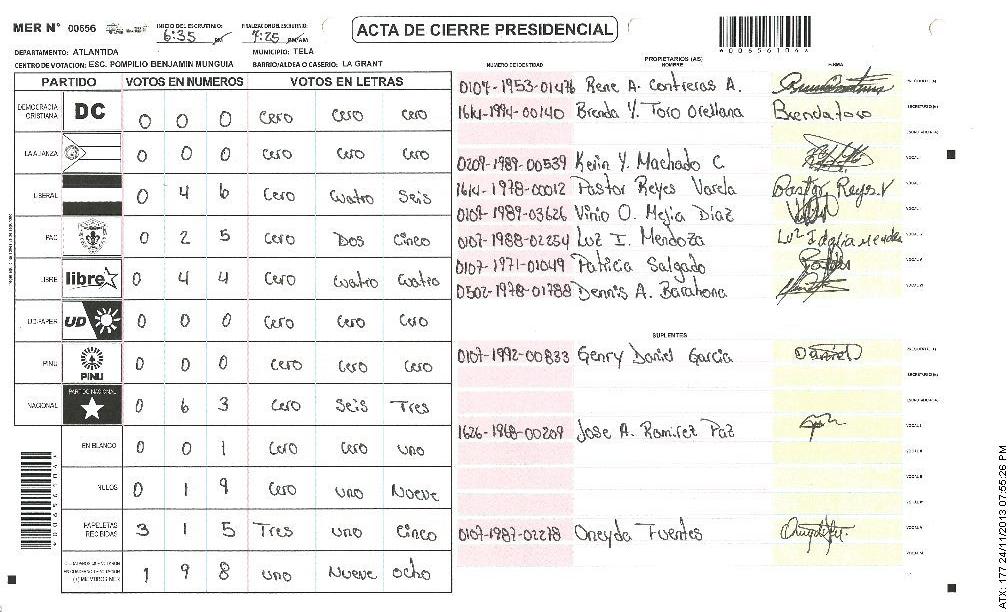 MER N° 00656 INICIO DEL ESCRUTINIO: 6:35 PM FINALIZACION DEL ESCRUTINIO: 7:25 PM/AM
ACTA DE CIERRE PRESIDENCIAL
DEPARTAMENTO: ATLANTIDA MUNICIPIO: TELA
CENTRO DE VOTACION: ESC. POMPILIO BENJAMIN MUNGUIA BARRIO/ALDEA O CASERIO: LA GRANT
PARTIDO VOTOS EN NUMEROS VOTOS EN LETRAS
DEMOCRACIA CRISTIANA DC 0 0 0 Cero Cero Cero
LA ALIANZA 0 0 0 Cero Cero Cero
LIBERAL 0 4 6 Cero Cuatro Seis
PAC 0 2 5 Cero Dos Cinco
LIBRE libre 0 4 4 Cero Cuatro Cuatro
UD-FAPER UD 0 0 0 Cero Cero Cero
PINU PINU 0 0 0 Cero Cero Cero
NACIONAL PARTIDO NACIONAL 0 6 3 Cero Seis Tres
EN BLANCO 0 0 1 Cero Cero Uno
NULOS 0 1 9 Cero Uno Nueve
PAPELETAS RECIBIDAS 3 1 5 Tres Uno Cinco
1 9 8 Uno Nueve Ocho
NUMERO DE IDENTIDAD PROPIETARIOS (AS) NOMBRE FIRMA
0107-1953-01476 Rene A. Contreras A.
1614-1994-00140 Brenda Y. Toro Orellana Brenda toro
0209-1989-00539 Kevin Y. Machado C
1614-1978-00012 Pastor Reyes Varela Pastor Reyes.V
0107-1989-03626 Vinio O. Mejia Díaz
0107-1988-02254 Luz I. Mendoza Luz Idalia Mendoza
0107-1971-01049 Patricia Salgado
0502-1978-01788 Dennis A. Barahona
SUPLENTES
0107-1992-00833 Genry Daniel Garcia Daniel
1626-1968-00209 Jose A. Ramirez Paz
0107-1987-02278 Oneyda Fuentes
ATX: 177 24/11/2013 07:55:26 PM